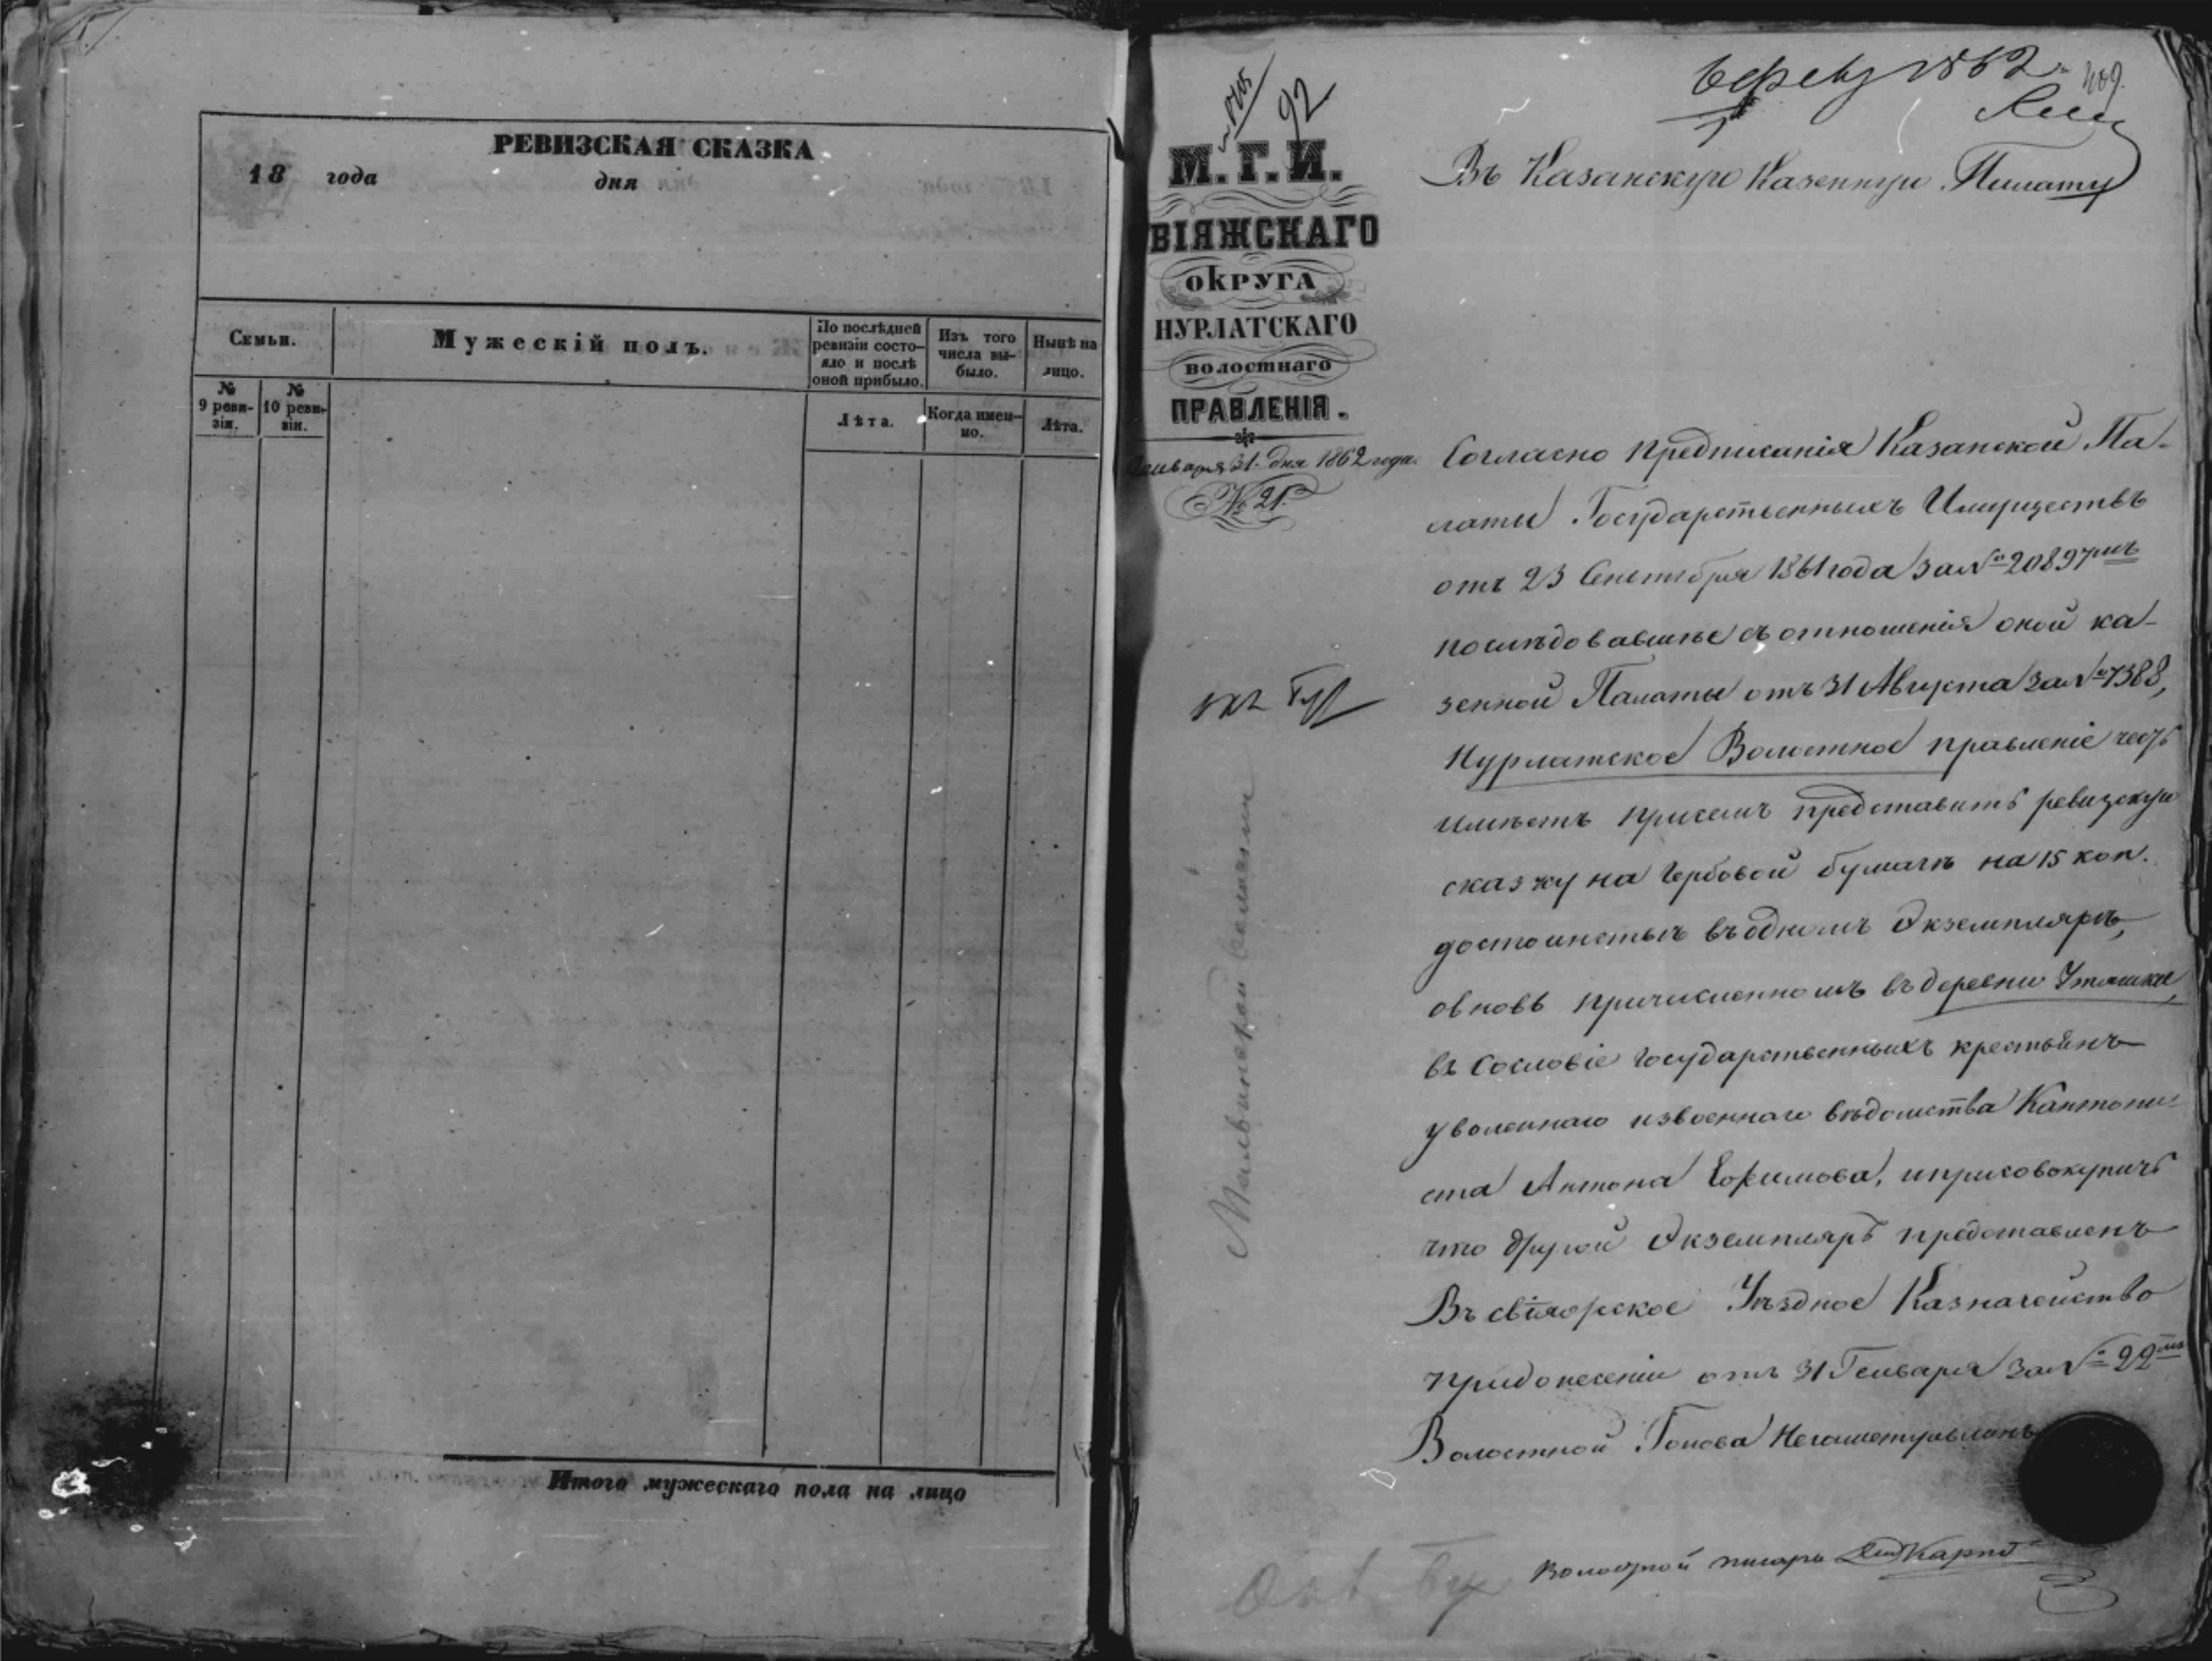 РЕВИЗСКАЯ СКАЗКА
18 года дня
Семьи.
Мужескій полъ.
По послѣдней ревизіи состо-
яло и послѣ оной прибыло.
Изъ того числа вы-
было.
Нынѣ на лицо.
№ 9 реви-
зіи.
№ 10 реви-
зіи.
Лѣта.
Когда имен-
но.
Лѣта.
Итого мужескаго пола на лицо
92
1862
409.
М. Г. И.
ВІЯЖСКАГО
ОКРУГА
НУРЛАТСКАГО
ВОЛОСТНАГО
ПРАВЛЕНІЯ.
Генваря 31. дня 1862 года.
№ 21.
Въ Казанскую Казенную Палату
Согласно предписанія Казанской Па-
латы Государственныхъ Имуществъ
отъ 23 Сентября 1861 года за № 20897мъ
послѣдовавшѣе съ отношенія оной ка-
зенной Палаты отъ 31 Августа за № 7388,
Нурлатское Волостное правленіе честь
имѣетъ присемъ представить ревизскую
сказку на Гербовой бумагѣ на 15 коп.
достоинствъ въ одномъ Экземплярѣ,
овновь причисленномъ въ деревни Утяшки,
въ Сословіе государственныхъ крестьянъ
уволеннаго извоеннаго вѣдомства Кантони-
ста Антона Ефимова, иприсовокупить
что другой Экземпляръ представленъ
Въ свіяжское Уѣздное Казначейство
придонесеніи отъ 31 Генваря за № 22мъ
Волостной Голова
Волостной писарь